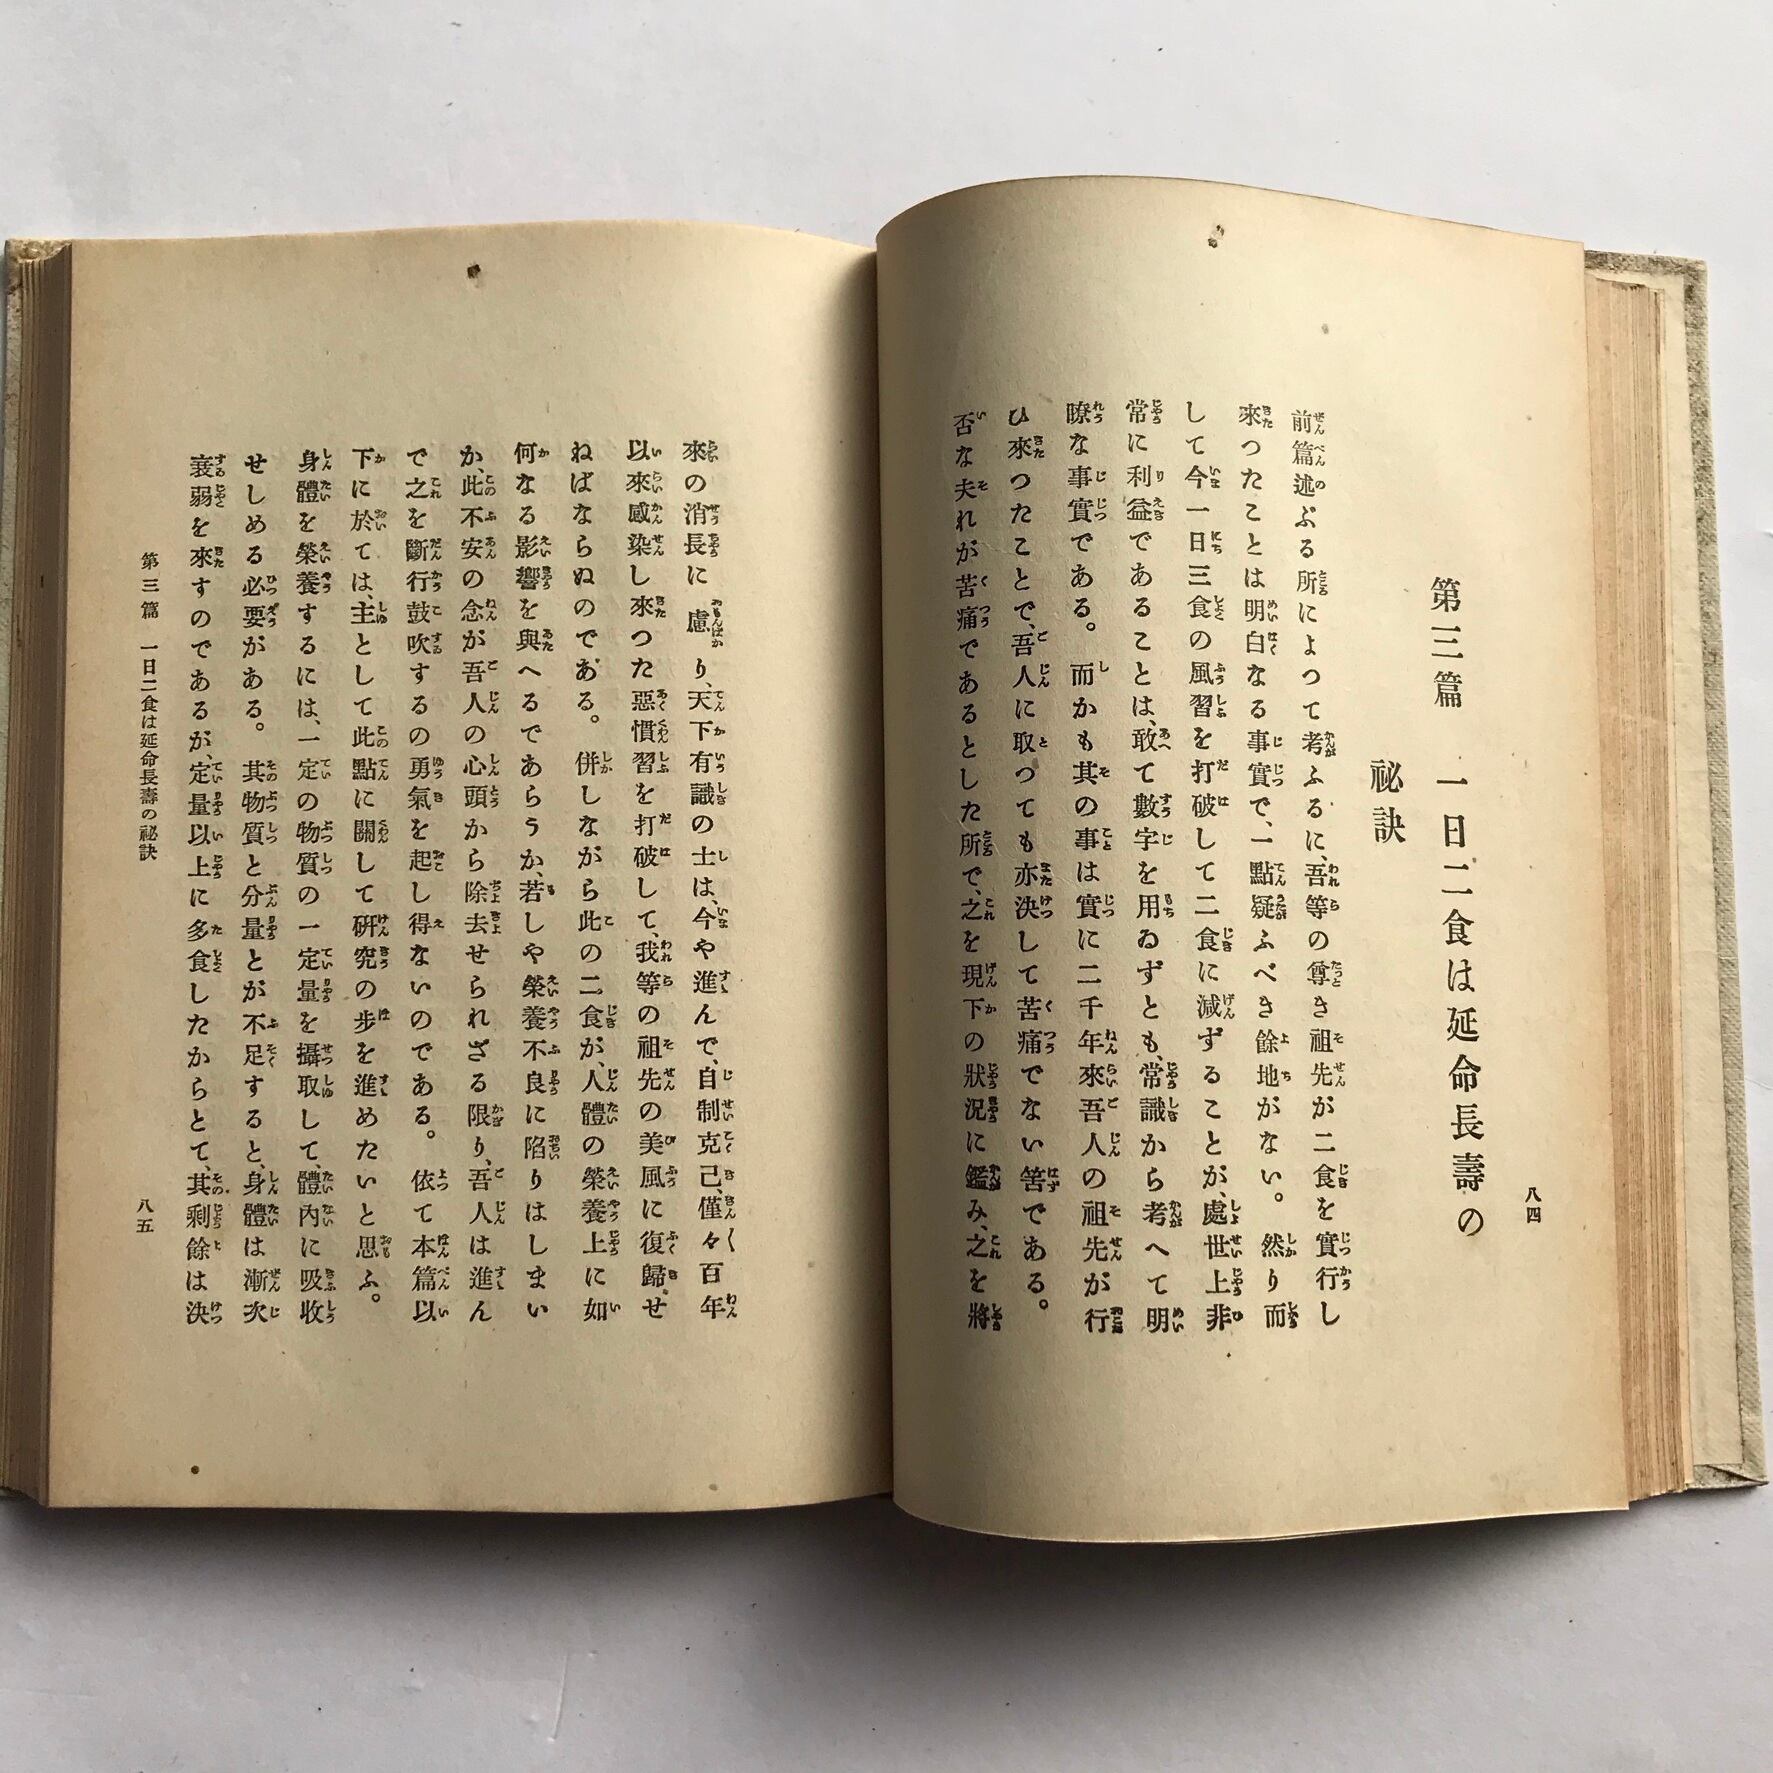 八四
第三篇 一日二食は延命長壽の
祕訣
前篇述ぶる所によつて考ふるに、吾等の尊き祖先が二食を實行し
來つたことは明白なる事實で、一點疑ふべき餘地がない。然り而
して今一日三食の風習を打破して二食に減ずることが、處世上非
常に利益であることは、敢て數字を用ゐずとも、常識から考へて明
瞭な事實である。而かも其の事は實に二千年來吾人の祖先が行
ひ來つたことで、吾人に取つても亦決して苦痛でない筈である。
否な夫れが苦痛であるとした所で、之を現下の狀況に鑑み、之を將
來の消長に慮り、天下有識の士は、今や進んで、自制克己、僅々百年
以來感染し來つた惡慣習を打破して、我等の祖先の美風に復歸せ
ねばならぬのである。併しながら此の二食が、人體の榮養上に如
何なる影響を與へるであらうか、若しや榮養不良に陷りはしまい
か、此不安の念が吾人の心頭から除去せられざる限り、吾人は進ん
で之を斷行鼓吹するの勇氣を起し得ないのである。依て本篇以
下に於ては、主として此點に關して硏究の步を進めたいと思ふ。
身體を榮養するには、一定の物質の一定量を攝取して、體內に吸收
せしめる必要がある。其物質と分量とが不足すると、身體は漸次
衰弱を來すのであるが、定量以上に多食したからとて、其剩餘は決
第三篇 一日二食は延命長壽の祕訣
八五